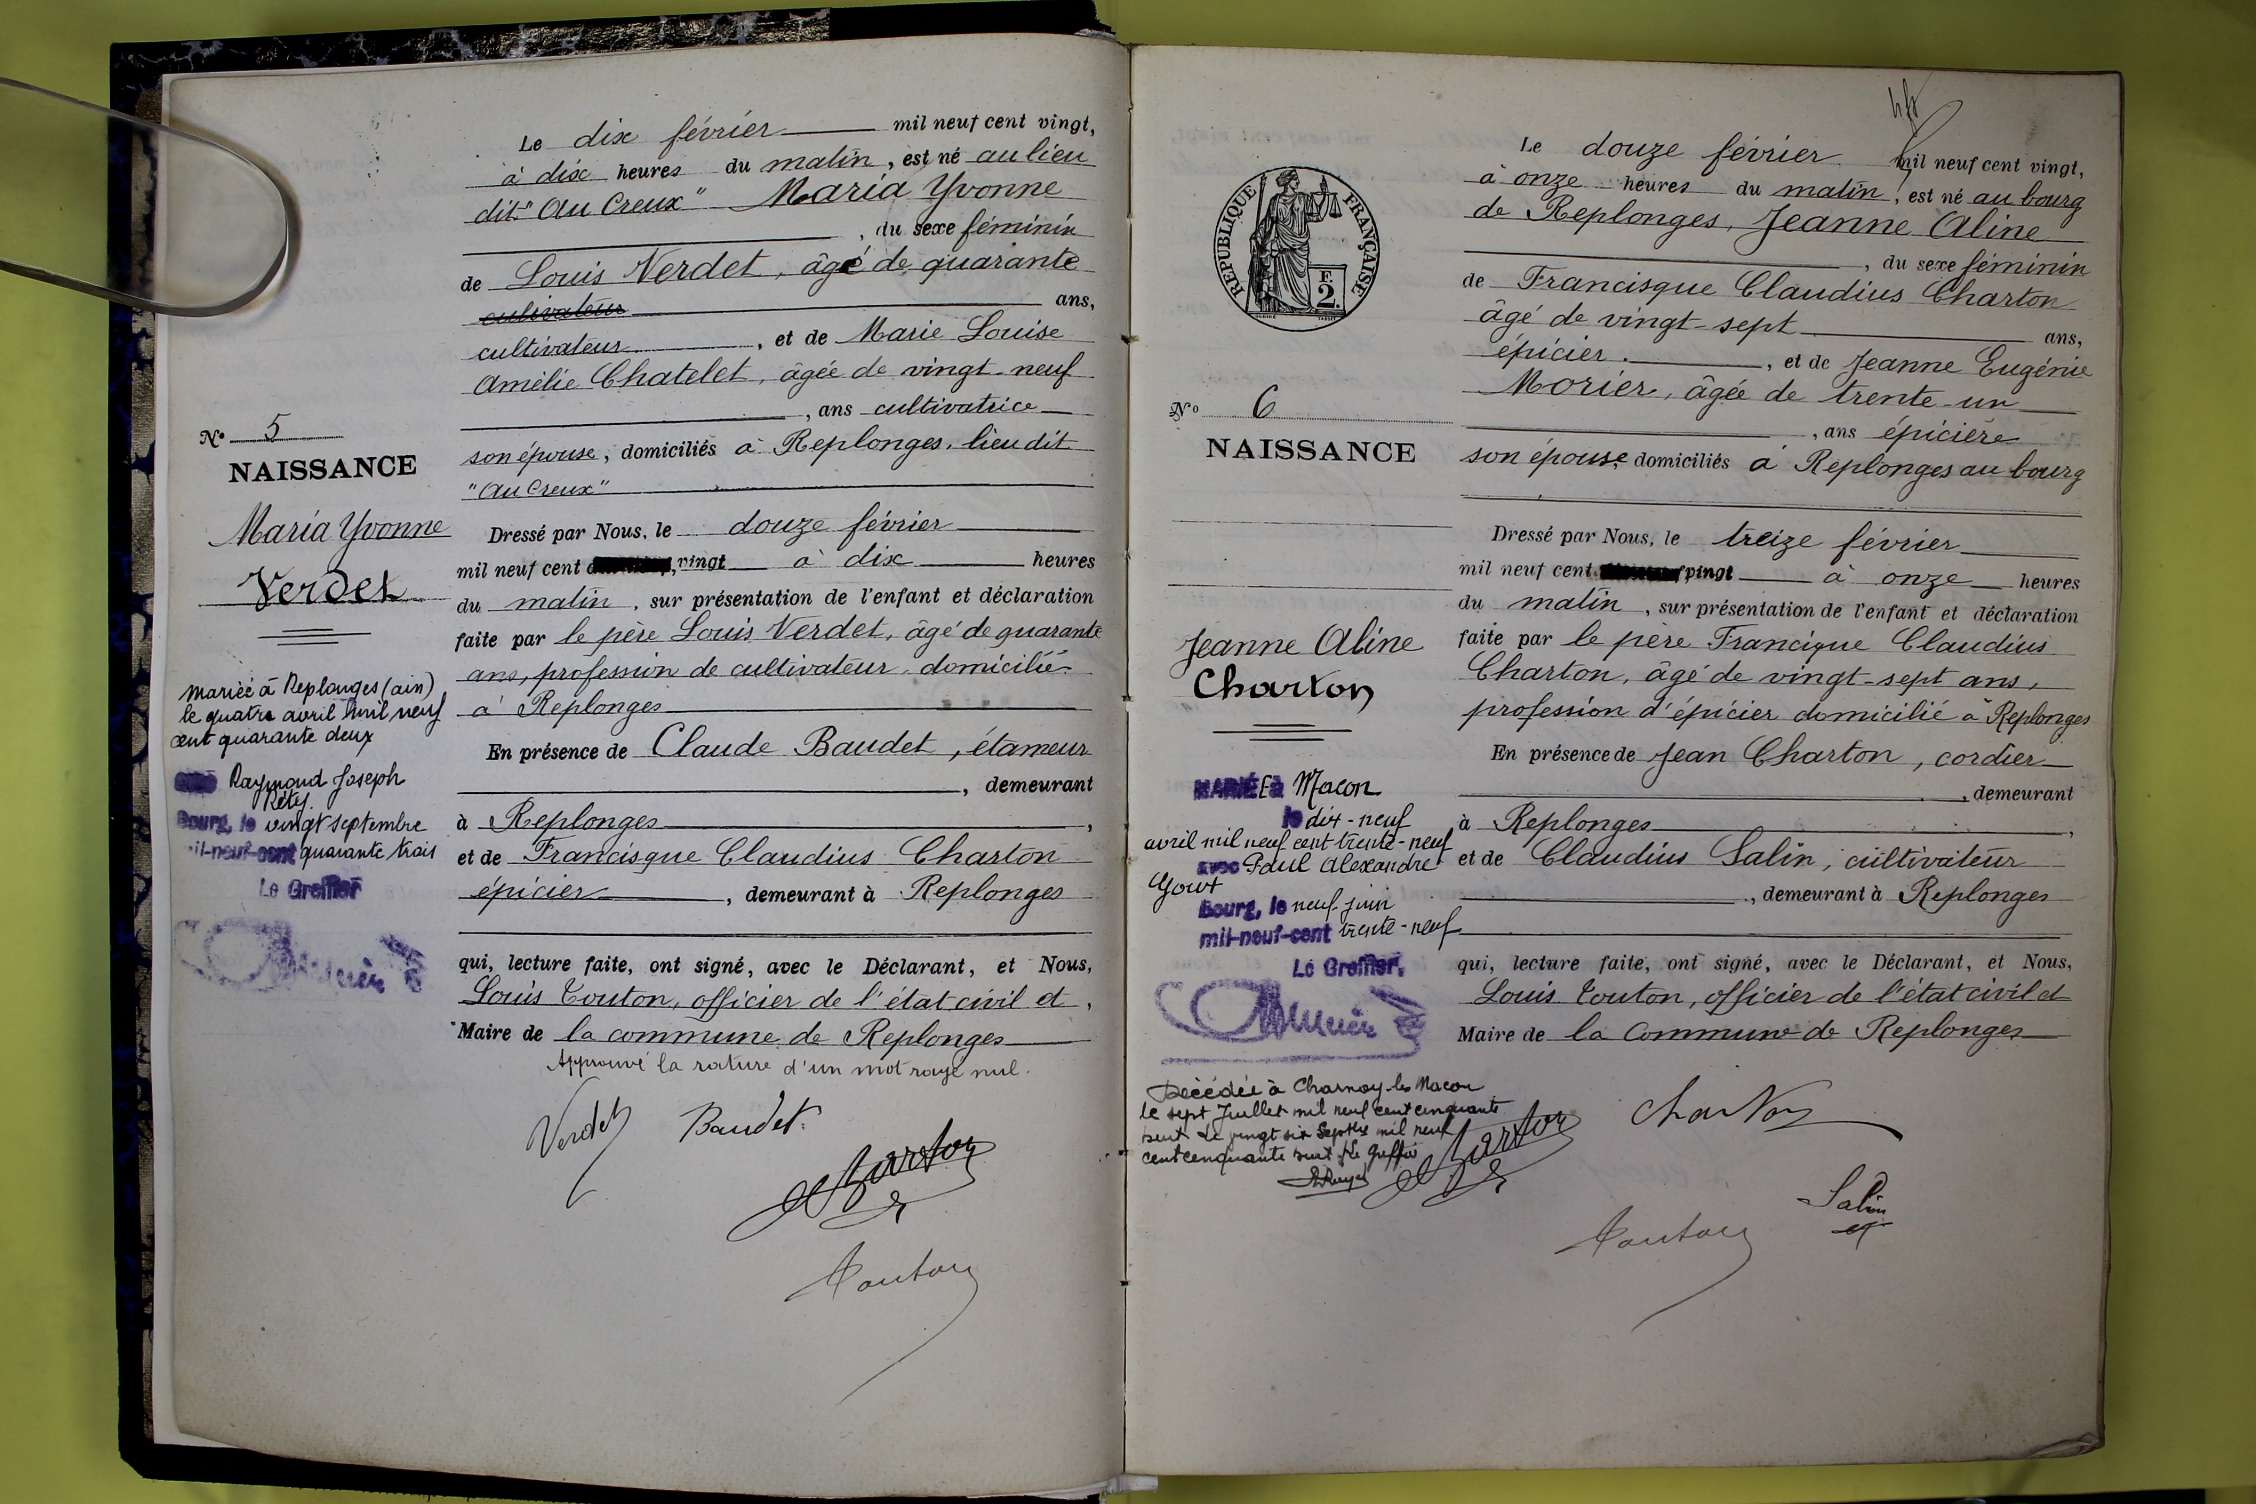 Le dix février mil neuf cent vingt,
à dix heures du matin, est né au lieu
dit "Au Creux" Maria Yvonne
, du sexe féminin
de Louis Verdet, âgé de quarante
cultivateur ans,
cultivateur, et de Marie Louise
Amélie Chatelet, âgée de vingt-neuf
, ans cultivatrice
son épouse, domiciliés à Replonges, lieu dit
"Au Creux"
Dressé par Nous, le douze février
mil neuf cent vingt à dix heures
du matin, sur présentation de l'enfant et déclaration
faite par le père Louis Verdet, âgé de quarante
ans, profession de cultivateur, domicilié
à Replonges
En présence de Claude Baudet, étameur
, demeurant
à Replonges,
et de Francisque Claudius Charton
épicier, demeurant à Replonges
qui, lecture faite, ont signé, avec le Déclarant, et Nous,
Louis Touton, officier de l'état civil et,
Maire de la commune de Replonges
Approuvé la rature d'un mot rayé nul.
Verdet Baudet
Charton
Touton
No 5
NAISSANCE
Maria Yvonne
Verdet
Mariée à Replonges (ain)
le quatre avril mil neuf
cent quarante deux
Raymond Joseph
Réty.
Bourg, le vingt septembre
mil-neuf-cent quarante trois
Le Greffier
Le douze février mil neuf cent vingt,
à onze heures du matin, est né au bourg
de Replonges, Jeanne Aline
, du sexe féminin
de Francisque Claudius Charton
âgé de vingt-sept ans,
épicier, et de Jeanne Eugénie
Morier, âgée de trente-un
, ans épicière
son épouse, domiciliés à Replonges au bourg
Dressé par Nous, le treize février
mil neuf cent vingt à onze heures
du matin, sur présentation de l'enfant et déclaration
faite par le père Francique Claudius
Charton, âgé de vingt-sept ans,
profession d'épicier domicilié à Replonges
En présence de Jean Charton, cordier
, demeurant
à Replonges,
et de Claudius Salin, cultivateur
, demeurant à Replonges
qui, lecture faite, ont signé, avec le Déclarant, et Nous,
Louis Touton, officier de l'état civil et
Maire de la Commune de Replonges
Charton
Charton
Salin
Touton
RÉPUBLIQUE FRANÇAISE
F.
2.
No 6
NAISSANCE
Jeanne Aline
Charton
MARIÉE à Macon
le dix-neuf
avril mil neuf cent trente-neuf
avec Paul Alexandre
Bourg, le neuf juin
mil-neuf-cent trente-neuf
Le Greffier,
Décédée à Charnay les Macon
le sept Juillet mil neuf cent cinquante
huit Le vingt six Septbre mil neuf
cent cinquante huit Le Greffier